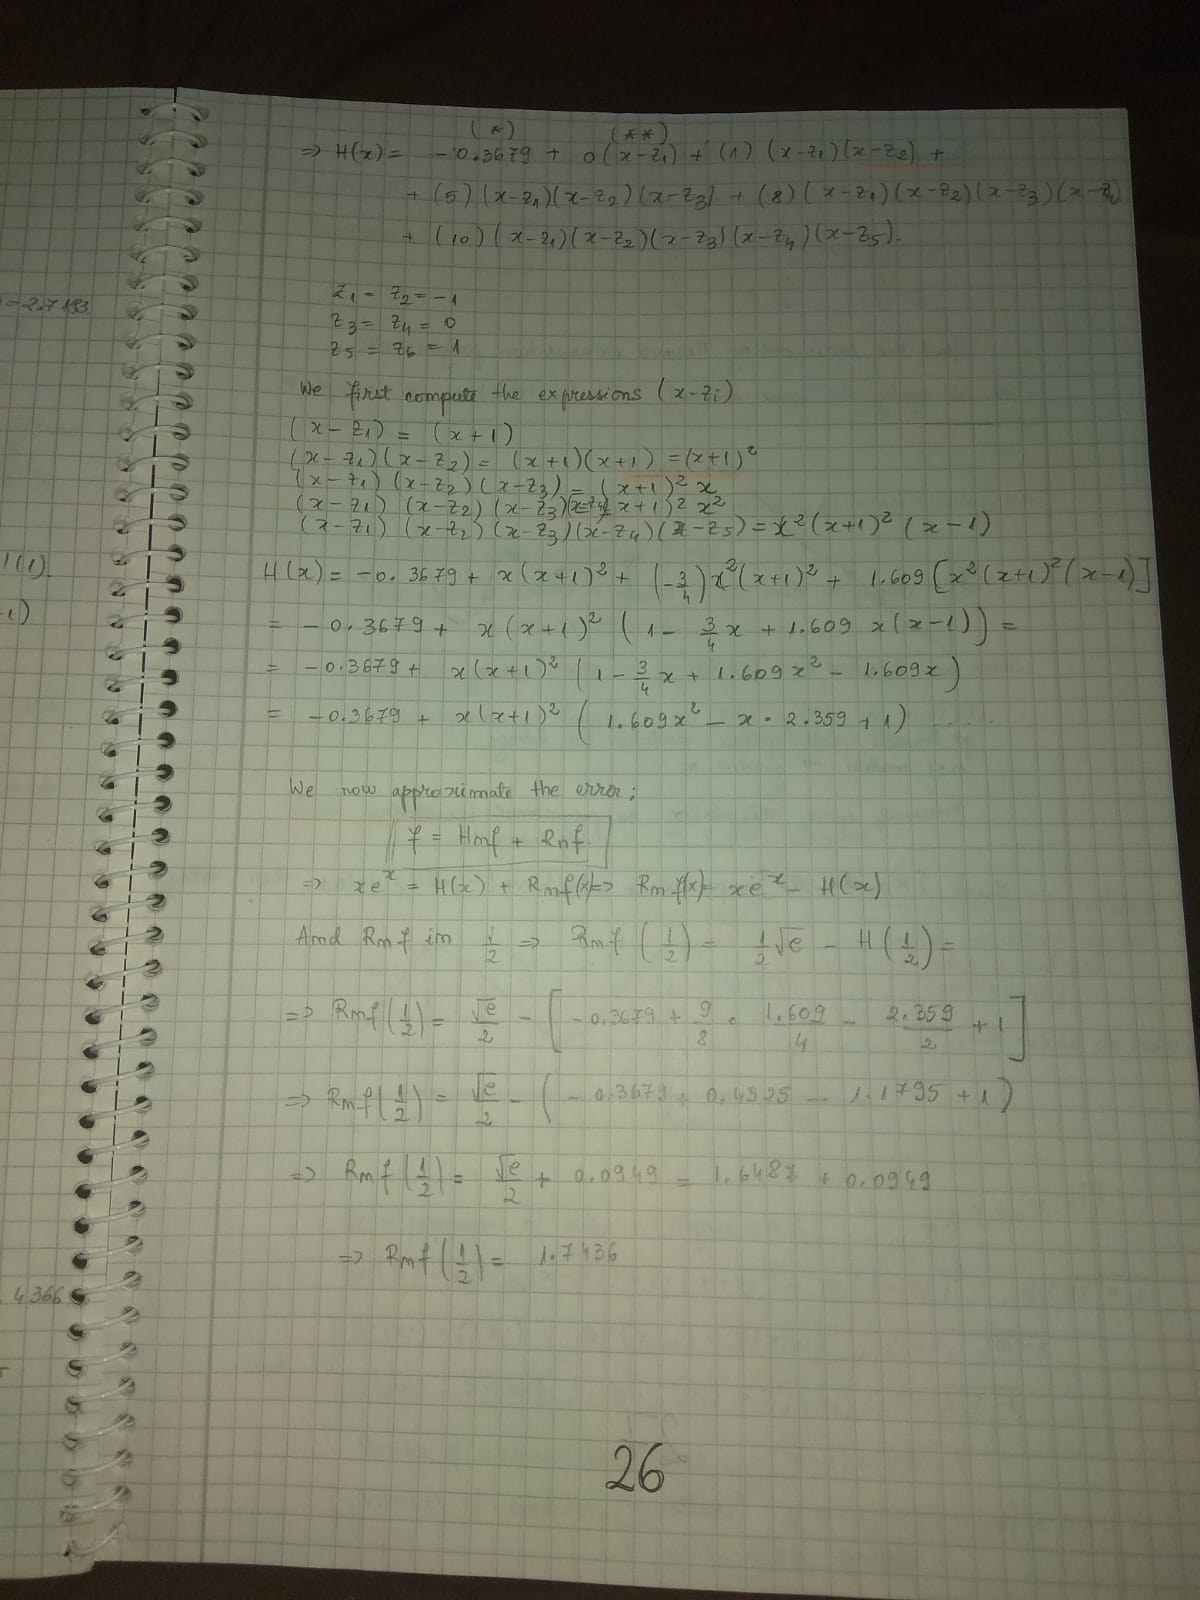 (*) (**)
=> H(x) = -0.3679 + 0(x-z₁) + (1) (x-z₁)(x-z₂) +
+ (5)(x-z₁)(x-z₂)(x-z₃) + (8)(x-z₁)(x-z₂)(x-z₃)(x-z₄)
+ (10)(x-z₁)(x-z₂)(x-z₃)(x-z₄)(x-z₅).
z₁ = z₂ = -1
= 2.7183
z₃ = z₄ = 0
z₅ = z₆ = 1
We first compute the expressions (x-zᵢ)
(x-z₁) = (x+1)
(x-z₁)(x-z₂) = (x+1)(x+1) = (x+1)²
(x-z₁)(x-z₂)(x-z₃) = (x+1)² x
(x-z₁)(x-z₂)(x-z₃)(x-z₄) = (x+1)² x²
(x-z₁)(x-z₂)(x-z₃)(x-z₄)(x-z₅) = x²(x+1)²(x-1)
H(x) = -0.3679 + x(x+1)² + (-3/4)x²(x+1)² + 1.609[x²(x+1)²(x-1)]
-1)
= -0.3679 + x(x+1)² (1 - 3/4 x + 1.609 x(x-1)) =
= -0.3679 + x(x+1)² (1 - 3/4 x + 1.609x² - 1.609x)
= -0.3679 + x(x+1)² (1.609x² - x · 2.359 + 1)
We now approximate the error:
f = Hmf + Rnf.
=> xeˣ = H(x) + Rmf(x) => Rmf(x) = xeˣ - H(x)
And Rmf in 1/2 => Rmf(1/2) = 1/2 √e - H(1/2) =
=> Rmf(1/2) = √e/2 - [-0.3679 + 9/8 · 1.609/4 - 2.359/2 + 1]
=> Rmf(1/2) = √e/2 - (-0.3679 + 0.4525 - 1.1795 + 1)
=> Rmf(1/2) = √e/2 + 0.0949 = 1.6487 + 0.0949
=> Rmf(1/2) = 1.7436
4366
26